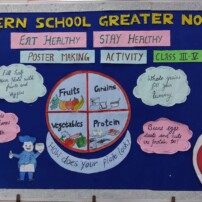 ERN SCHOOL GREATER NO
EAT HEALTHY STAY HEALTHY
POSTER MAKING ACTIVITY CLASS III-V
Fill half
your plate with
fruits and
veggies
Whole grains
for your
Fruits Grains
Vegetables Protein
Beans eggs
and nuts
protein
How does your plate look?